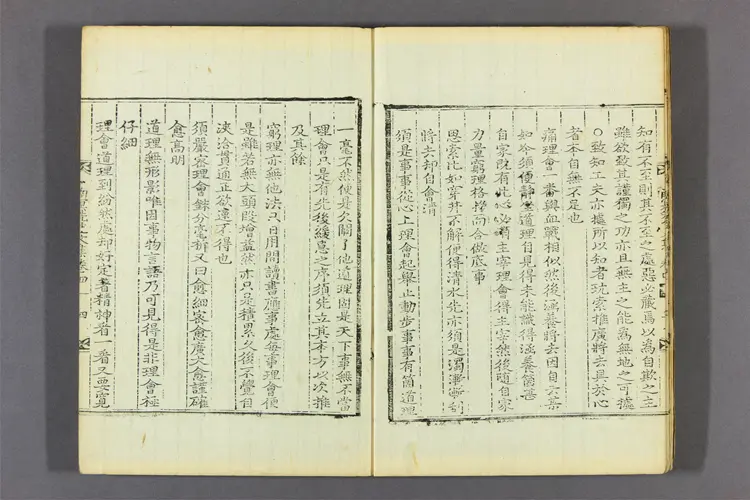 知有不至則其不至之處惡必藏焉以為自欺之主
雖欲致其謹獨之功亦且無主之能為無地之可據
○致知工夫亦據所以知者玩索推廣將去具於心
者本自無不足也
痛理會一番與血戰相似然後涵養將去因自云某
如今須便靜坐道理自見得未能識得涵養箇甚
自家既有此心必須主宰理會得主宰然後隨自家
力量窮理格物而合做底事
思索比如穿井不解便得清水先亦須是濁漸漸刮
將去却自會清
須是事事從心上理會起舉止動步事事有箇道理
一毫不然便是欠闕了他道理固是天下事無不當
理會只是有先後緩急之序須先立其本方以次推
及其餘
窮理亦無他法只日用間讀書應事處每事理會便
是雖若無大頭段增益然亦只是積累久後不覺自
浹洽貫通正欲速不得也
須嚴密理會銖分毫析又曰愈細密愈廣大愈謹確
愈高明
道理無形影唯因事物言語乃可見得是非理會極
仔細
理會道理到紛然處却好定著精神看一看又要窮